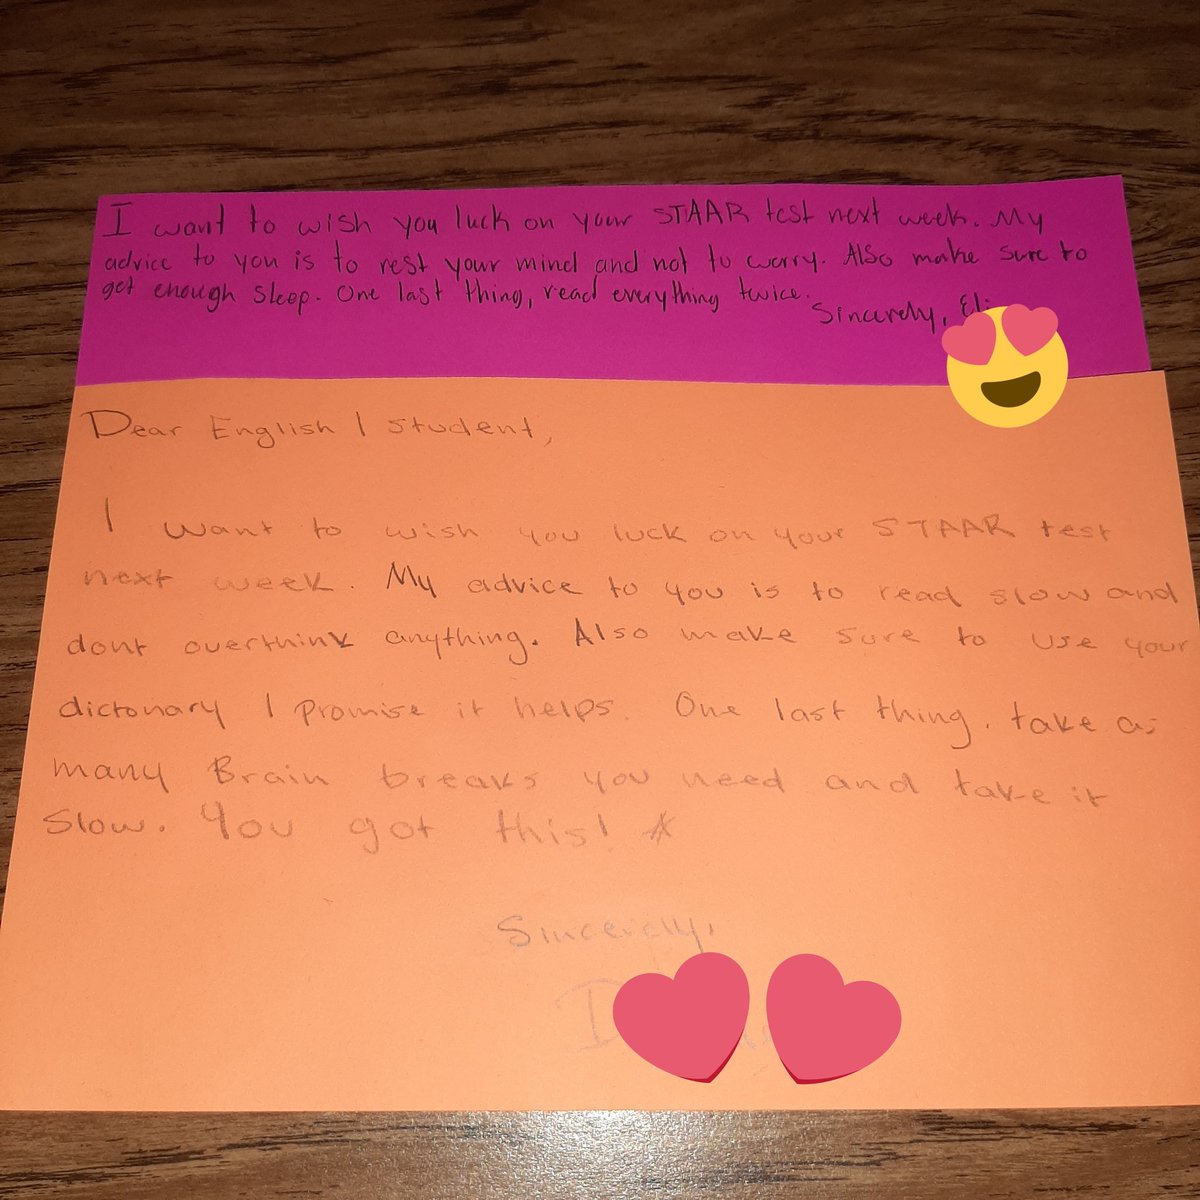 I want to wish you luck on your STAAR test next week. My
advice to you is to rest your mind and not to worry. Also make sure to
get enough sleep. One last thing, read everything twice.
Sincerely,
Dear English 1 student,
I want to wish you luck on your STAAR test
next week. My advice to you is to read slow and
dont overthink anything. Also make sure to use your
dictonary I promise it helps. One last thing, take as
many Brain breaks you need and take it
slow. You got this!
Sincerely,